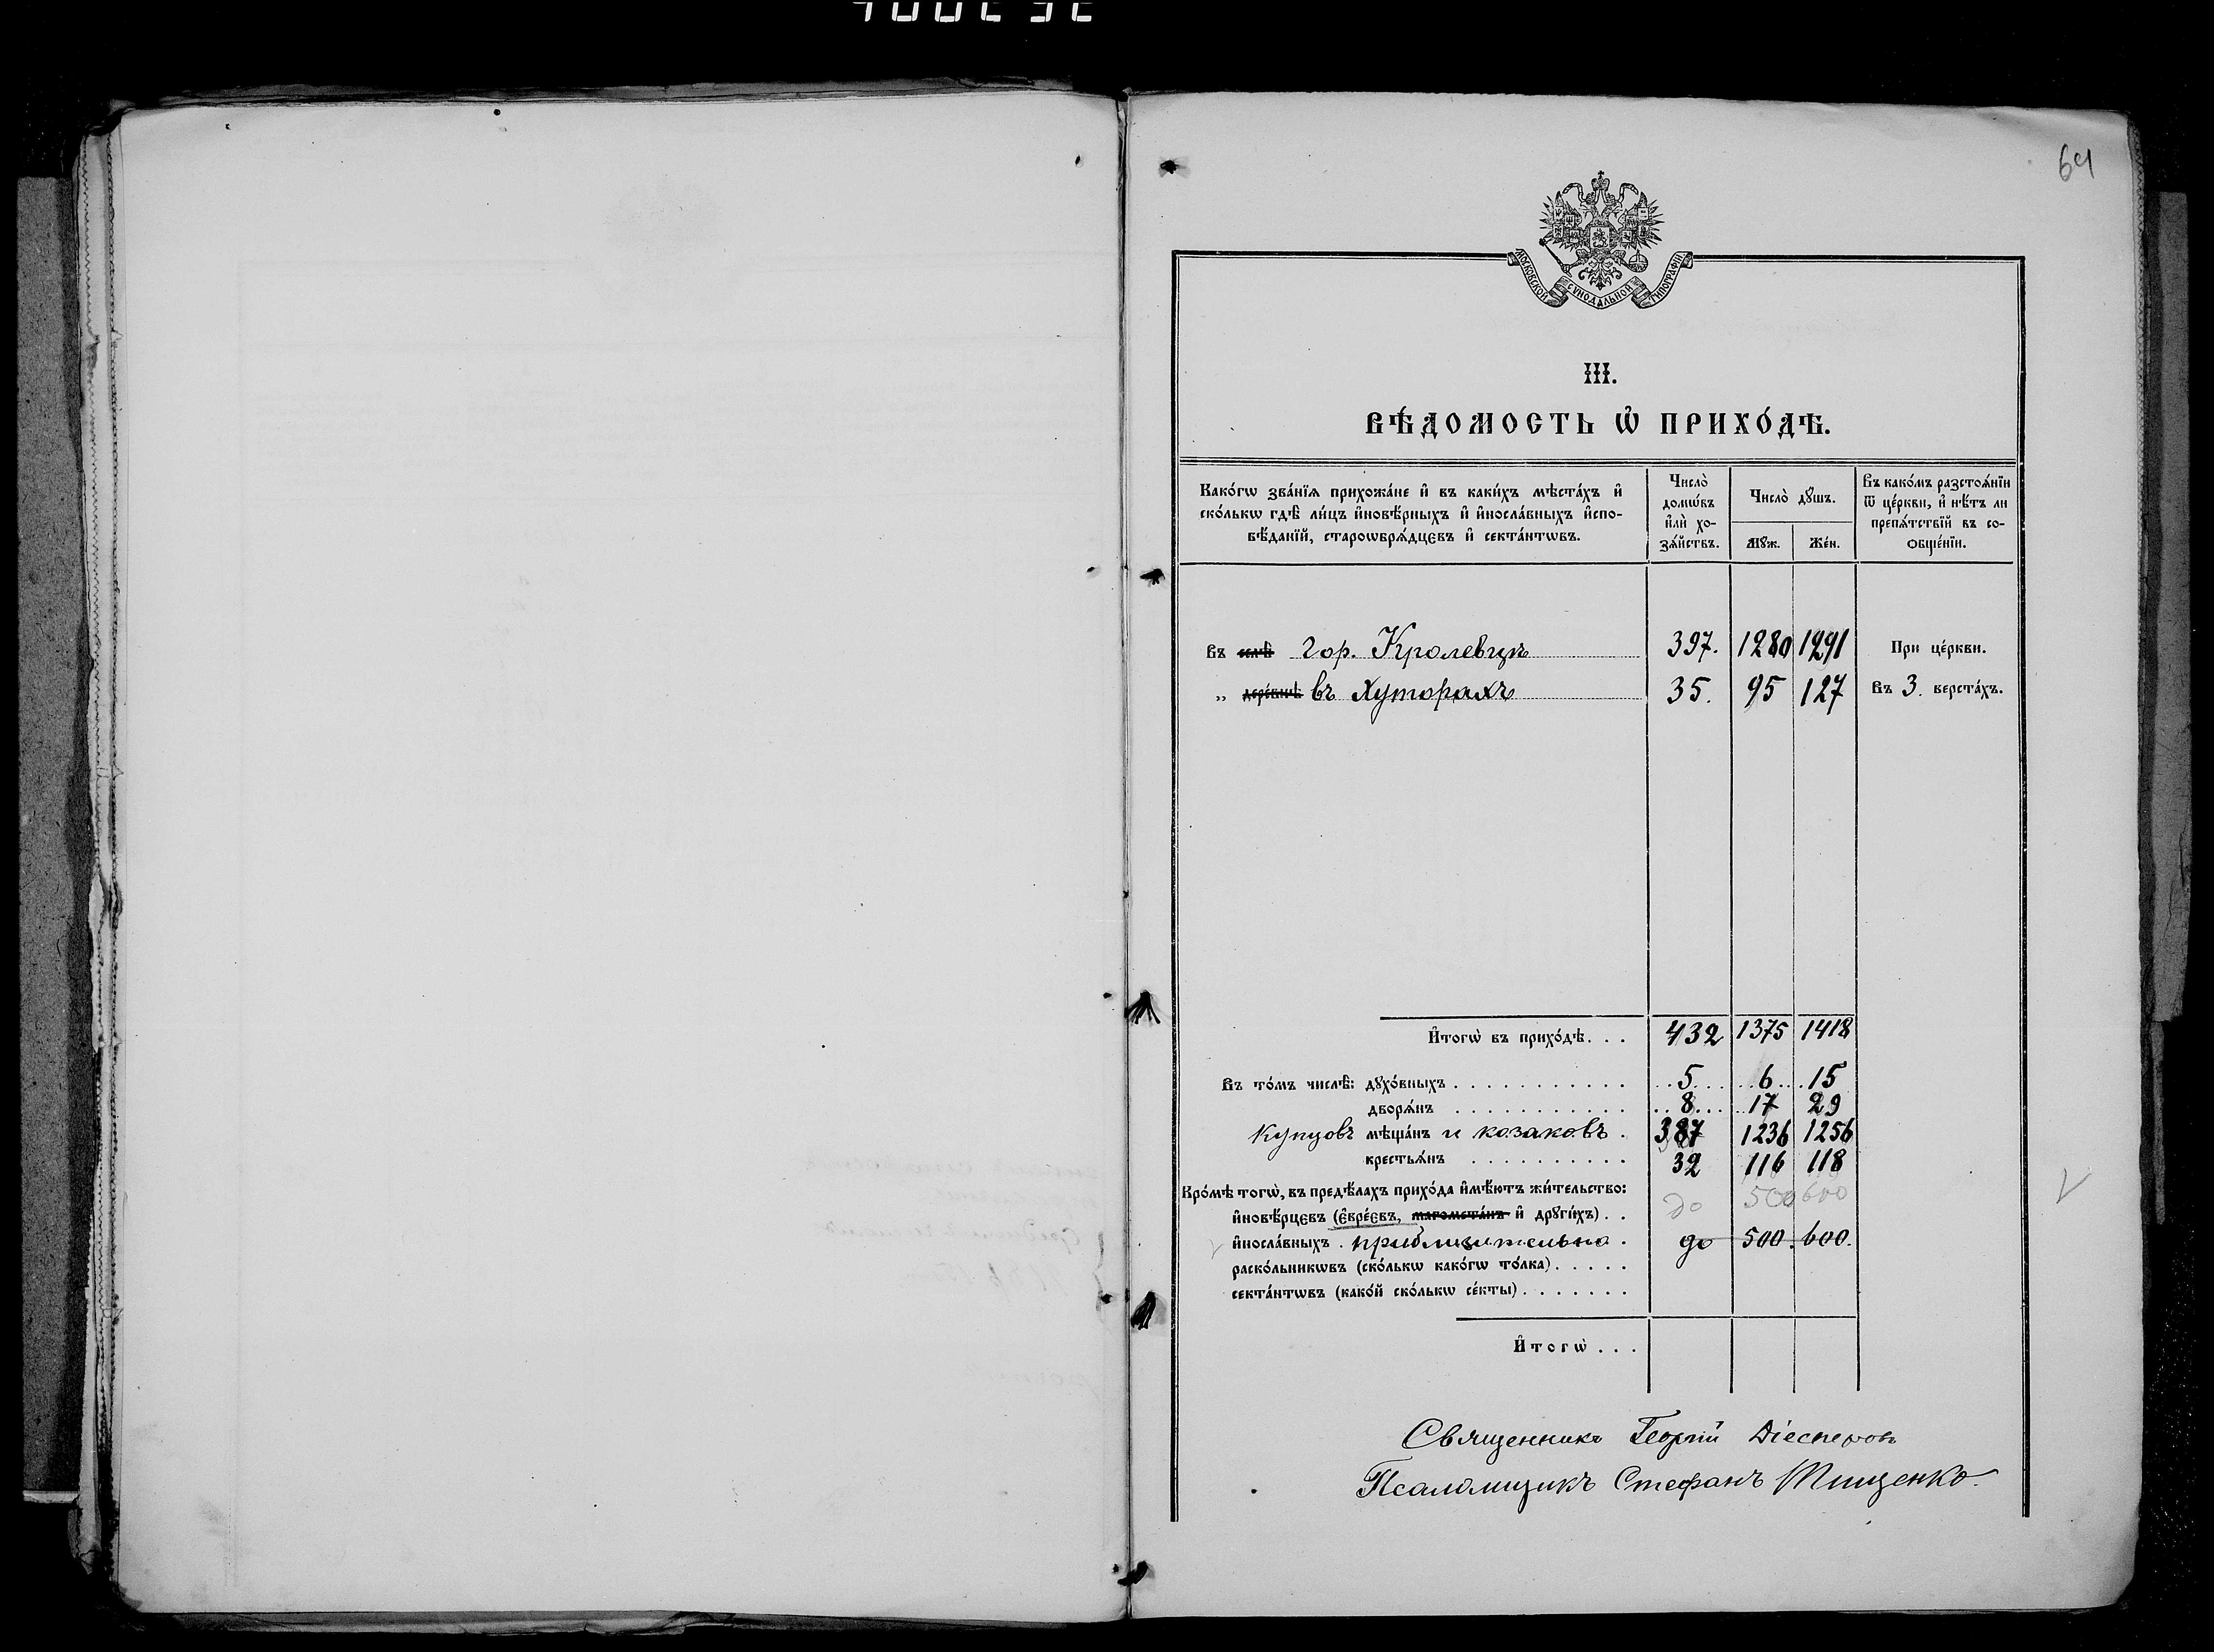 64
МОСКОВСКОЙ СѴНОДАЛЬНОЙ ТИПОГРАФІИ
III.
ВѢ́ДОМОСТЬ Ѽ ПРИХО́ДѢ.
Како́гѡ зва́нїѧ прихожа́не и҆ въ каки́хъ мѣста́хъ и҆ ско́лькѡ гдѣ̀ ли́цъ и҆новѣ́рныхъ и҆ и҆носла́вныхъ и҆сповѣ́данїй, староѡбрѧ́дцєвъ и҆ секта́нтѡвъ.
Число̀ домѡ́въ и҆лѝ хозѧ́йствъ.
Число̀ дꙋ́шъ.
Мꙋ́ж.
Же́н.
Въ како́мъ разстоѧ́нїи ѿ це́ркви, и҆ нѣ́тъ ли препѧ́тствїй въ сообще́нїи.
Въ селѣ̀ гор. Кролевцѣ 397. 1280 1291 При це́ркви.
„ дере́внѣ въ хуторахъ 35. 95 127 Въ 3. верста́хъ.
И҆тогѡ̀ въ прихо́дѣ. . . 432 1375 1418
Въ то́мъ числѣ̀: дꙋхо́вныхъ . . . 5 6 15
дворѧ́нъ . . . 8 17 29
Купцовъ мѣща́нъ и козаковъ . 387 1236 1256
крестьѧ́нъ . . . 32 116 118
Кро́мѣ тогѡ̀, въ предѣ́лахъ прихо́да и҆мѣ́ютъ жи́тельство:
и҆новѣ́рцєвъ (є҆вре́євъ, магомета́нъ и҆ дрꙋги́хъ) . . до 500 600
и҆носла́вныхъ . приблизительно . до 500. 600.
раско́льникѡвъ (ско́лькѡ како́гѡ то́лка) . . . . .
секта́нтѡвъ (како́й ско́лькѡ се́кты) . . . . . . .
И҆тогѡ̀ . . .
Священникъ Георгій Діесперовъ
Псаломщикъ Стефанъ Тищенко.